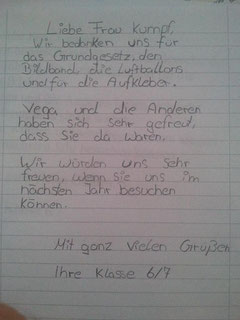 Liebe Frau Kumpf,
Wir bedanken uns für
das Grundgesetz, den
Bildband, die Luftballons
und für die Aufkleber.
Vega und die Anderen
haben sich sehr gefreut,
dass Sie da waren.
Wir würden uns sehr
freuen, wenn sie uns im
nächsten Jahr besuchen
können.
Mit ganz vielen Grüßen
Ihre Klasse 6/7